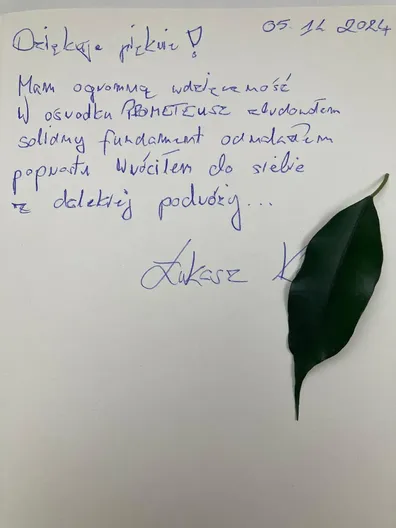 05. 12 2024
Dziękuję pięknie!
Mam ogromną wdzięczność
W ośrodku PROMETEUSZ zbudowałem
solidny fundament odnalazłem
poprostu Wróciłem do siebie
z dalekiej podróży...
Łukasz K